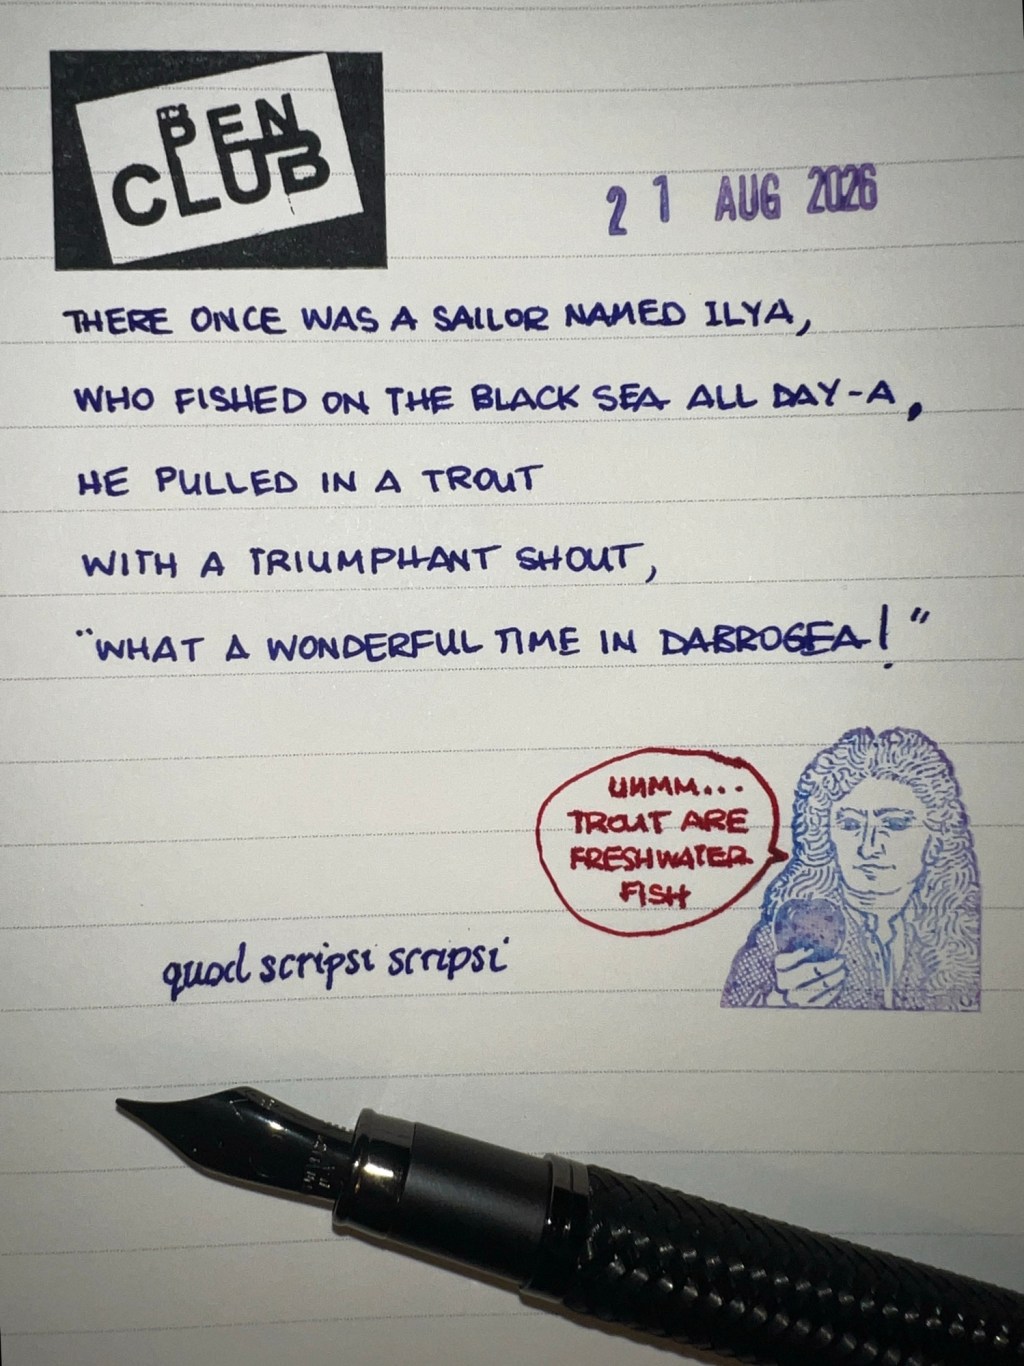 PEN
CLUB
21 AUG 2026
THERE ONCE WAS A SAILOR NAMED ILYA,
WHO FISHED ON THE BLACK SEA ALL DAY-A,
HE PULLED IN A TROUT
WITH A TRIUMPHANT SHOUT,
"WHAT A WONDERFUL TIME IN DABROGEA!"
UHMM...
TROUT ARE
FRESHWATER
FISH
quod scripsi scripsi